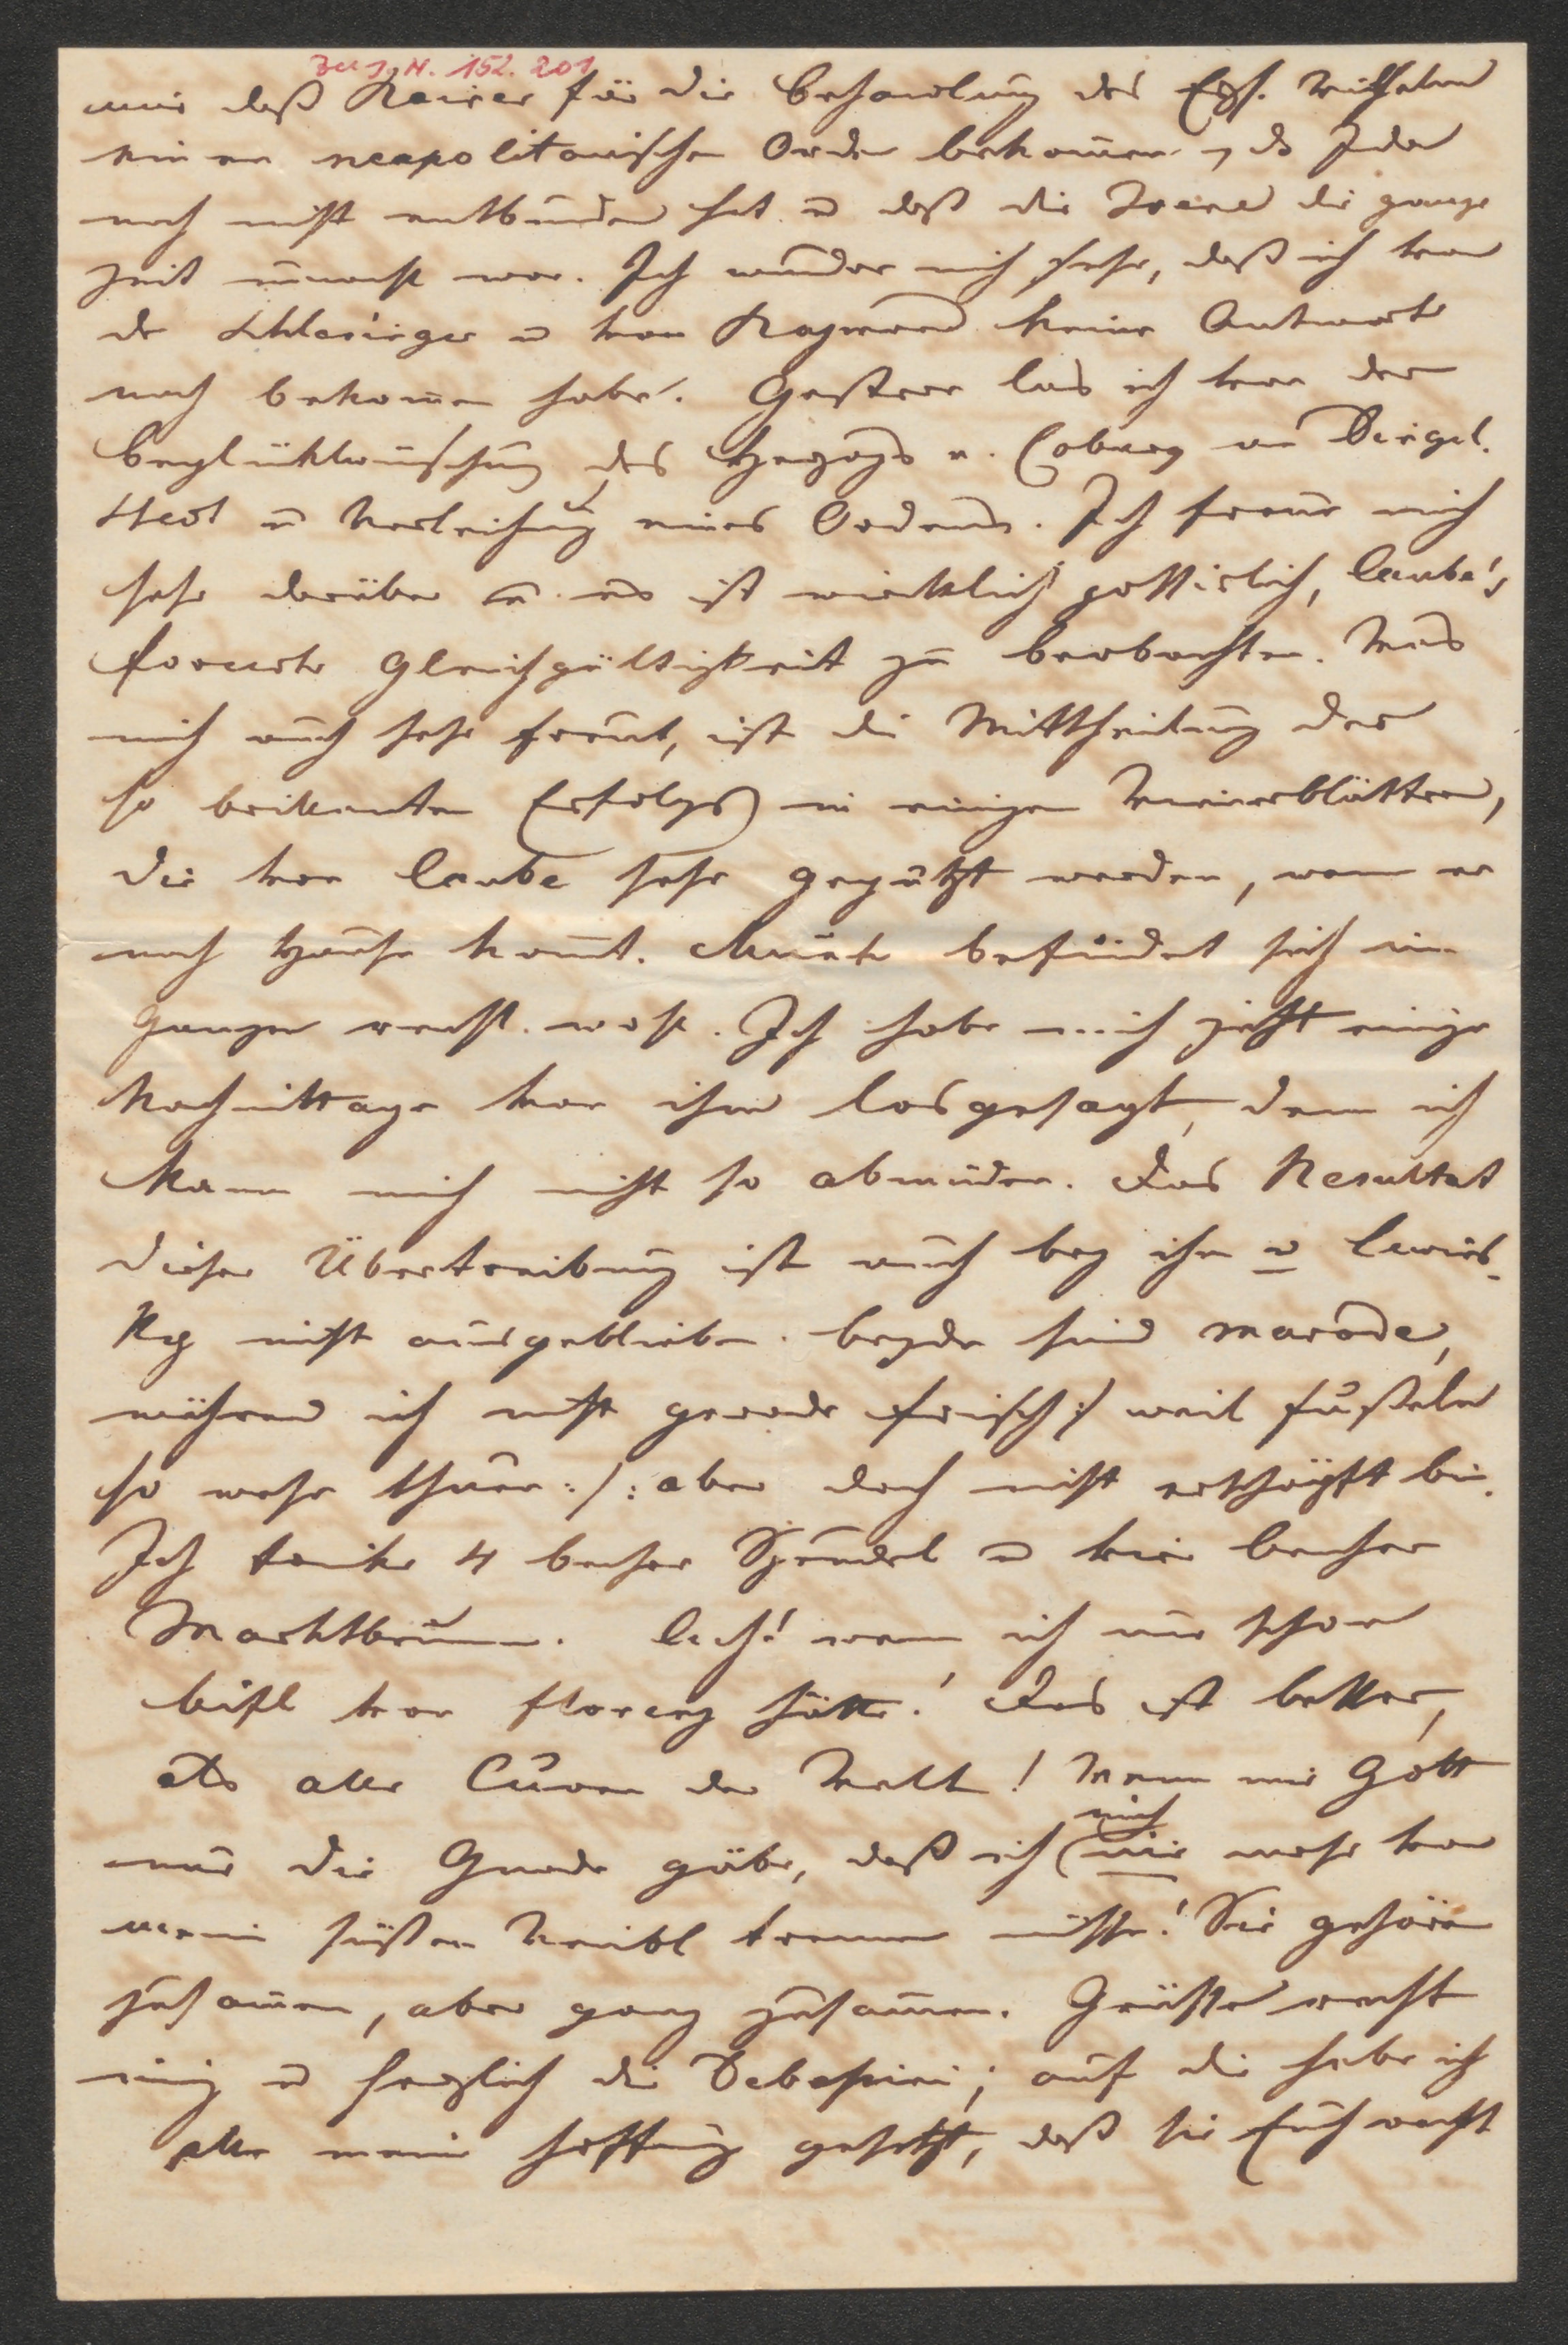 Zu I. N. 152.201
mir daß Kaiser für die Behandlung des Erzh. Wilhelm
einen neapolitanischen Orden bekommen, daß Ida
noch nicht entbunden hat u daß die Irene die ganze
Zeit unwohl war. Ich wundre mich sehr, daß ich von
der Schlesinger u von Raymond keine Antwort
noch bekommen habe. Gestern las ich von der
Beglückwünschung des Herzogs v. Coburg an Dingel-
stedt u Verleihung eines Ordens. Ich freue mich
sehr darüber u es ist wirklich göttlich, Laube's
forcirte Gleichgültigkeit zu beobachten. Was
mich auch sehr freut, ist die Mittheilung des
so brillanten Erfolgs in einigen Wienerblättern,
die von Laube sehr geputzt werden, wenn er
nach Hause kommt. Munk befindet sich im
Ganzen recht wohl. Ich habe mich jetzt einige
Nachmittage von ihm losgesagt, denn ich
kann mich nicht so abmüden. Das Resultat
dieser Übertreibung ist auch bey ihm u Lewins-
ky nicht ausgeblieben. beyde sind marode,
während ich nicht gerade frisch :/ weil Fußeln
so wehe thuen :/: aber doch nicht erschöpft bin.
Ich trinke 4 becher Sprudel u vier becher
Marktbrunn. Ach! wenn ich nur schon
bissl von Florenz hätte! Das ist besser,
als alle Curen der Welt! Wenn mir Gott
nur die Gnade gäbe, daß ich mich nie mehr von
mein süßen Weibl trennen müßte! Wir gehören
zusammen, aber ganz zusammen. Grüße recht
innig u herzlich die ; auf die habe ich
alle meine Hoffnung gesetzt, daß sie Euch recht